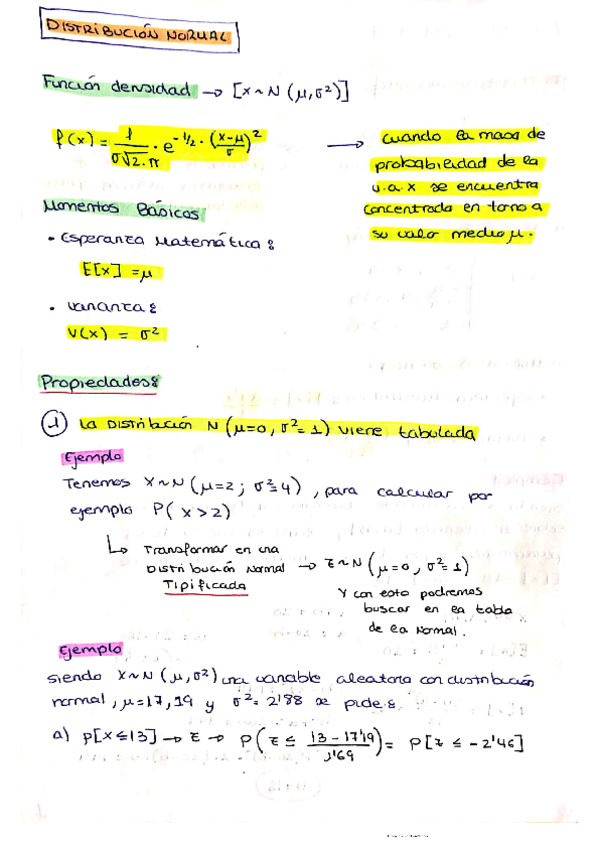 DISTRIBUCIÓN NORMAL
Función densidad → [x ~ N (μ, σ²)]
f(x) = 1/(σ√2·π) · e^(-1/2 · ((x-μ)/σ)²) → cuando la masa de
probabilidad de la
v.a. x se encuentra
concentrada en torno a
su valor medio μ.
Momentos Básicos
• Esperanza Matemática:
E[x] = μ
• Varianza:
V(x) = σ²
Propiedades:
① La Distribución N (μ=0, σ²=1) viene tabulada
Ejemplo
Tenemos X~N (μ=2; σ²=4), para calcular por
ejemplo P( x>2)
↳ Transformar en una
Distribución Normal → Z~N (μ=0, σ²=1)
Tipificada
Y con esto podremos
buscar en la tabla
de la Normal.
Ejemplo
siendo X~N (μ, σ²) una variable aleatoria con distribución
normal, μ=17,19 y σ²= 2'88 se pide:
a) P[X≤13] → Z → P(Z ≤ (13-17'19)/1'69) = P[Z ≤ -2'46]